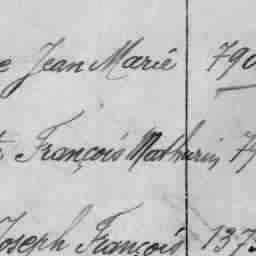 e Jean Marie 790
François Mathurin 79
Joseph François 1373